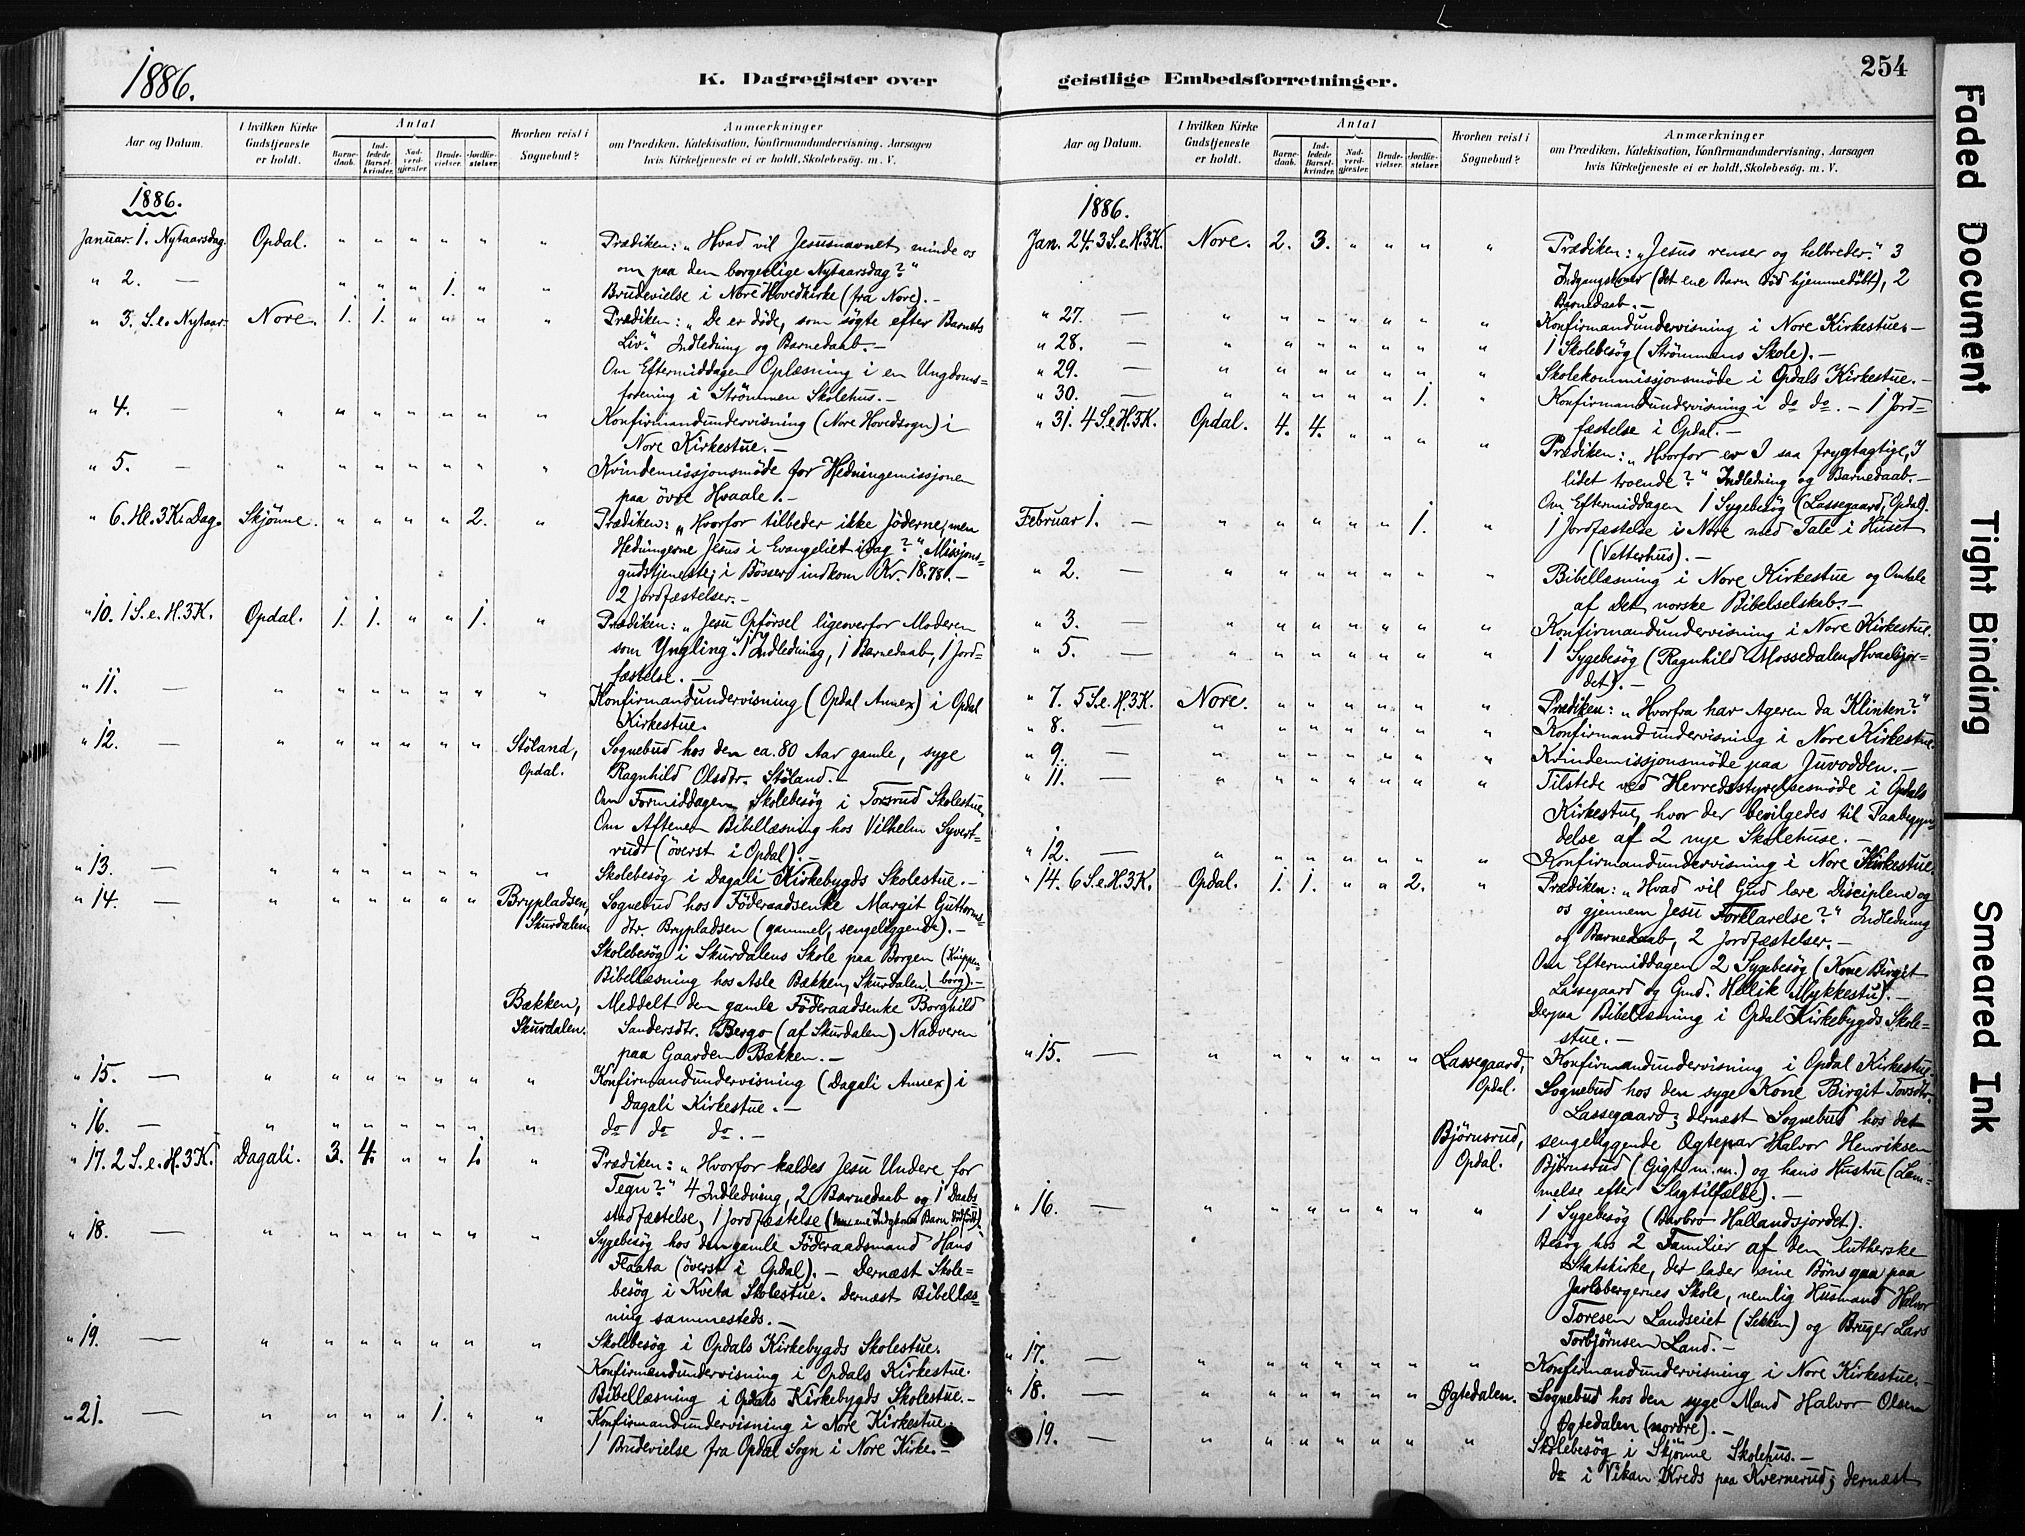 1886.
K. Dagregister over
Aar og Datum.
I hvilken Kirke Gudstjeneste er holdt.
Antal
Barne-daab.
Ind-ledede Barsel-kvinder.
Nad-verd-gjæster.
Brude-vielser.
Jordfæ-stelser.
Hvorhen reist i Sognebud?
Anmærkninger
om Prædiken, Katekisation, Konfirmandundervisning, Aarsagen
hvis Kirketjeneste ei er holdt, Skolebesøg. m. V.
1886.
Januar. 1. Nytaarsdag. Opdal. " " " " " " Prædiken: „Hvad vil Jesusnavnet minde os
om paa den borgerlige Nytaarsdag?"
" 2. — " " " 1. " " Brudevielse i Nore Hovedkirke (fra Nore). —
" 3. S. e. Nytaar. Nore. 1. 1. " " " " Prædiken: „De er döde, som sögte efter Barnets
Liv." Indledning og Barnedaab. —
Om Eftermiddagen Oplæsning i en Ungdoms-
forening i Strömmen Skolehus. —
" 4. — " " " " " " " Konfirmandundervisning (Nore Hovedsogn) i
Nore Kirkestue. —
" 5. — " " " " " " " Kvindemissjonsmöde for Hedningemissjonen
paa övre Hvaale. —
" 6. Hl. 3K. Dag. Skjönne. " " " " 2. " Prædiken: „Hvorfor tilbeder ikke Jöderne, men
Hedningerne Jesus i Evangeliet idag?" Missjons-
gudstjeneste; i Bösser indkom Kr. 18.78. —
2 Jordfæstelser. —
" 10. 1 S. e. H. 3K. Opdal. 1. 1. " " 1. " Prædiken: „Jesu Opförsel ligeoverfor Moderen
som Yngling." 1 Indledning, 1 Barnedaab, 1 Jord-
fæstelse. —
" 11. — " " " " " " " Konfirmandundervisning (Opdal Annex) i Opdal
Kirkestue.
" 12. — " " " " " " Stöland, Sognebud hos den ca. 80 Aar gamle, syge
Opdal. Ragnhild Olsdtr. Stöland. —
Om Formiddagen Skolebesög i Torsrud Skolestue
Om Aftenen Bibellæsning hos Vilhelm Syvert-
rud (överst i Opdal). —
" 13. — " " " " " " " Skolebesög i Dagali Kirkebygds Skolestue. —
" 14. — " " " " " " Brypladsen, Sognebud hos Föderaadsenke Margit Guttorms-
Skurdalen. dtr. Brypladsen (gammel, sengeliggende). —
Skolebesög i Skurdalens Skole paa Borgen (Knippen-
Bibellæsning hos Asle Bækken, Skurdalen. borg). —
Bækken, Meddelt den gamle Föderaadsenke Borghild
Skurdalen. Sandersdtr. Bergo (af Skurdalen) Nadveren
paa Gaarden Bækken. —
" 15. — " " " " " " " Konfirmandundervisning (Dagali Annex) i
Dagali Kirkestue. —
" 16. — " " " " " " " do do do. —
" 17. 2 S. e. H. 3K. Dagali. 3. 4. " " 1. " Prædiken: „Hvorfor kaldes Jesu Undere for
Tegn?" 4 Indledning, 2 Barnedaab og 1 Daabs
stadfæstelse, 1 Jordfæstelse (den ene Barn dödfödt).
" 18. — " " " " " " " Sygebesög hos den gamle Föderaadsmand Hans
Flaata (överst i Opdal). — Dernæst Skole-
besög i Kveta Skolestue. Dernæst Bibellæs-
ning sammesteds. —
" 19. — " " " " " " " Skolebesög i Opdals Kirkebygds Skolestue.
Konfirmandundervisning i Opdals Kirkestue.
Bibellæsning i Opdals Kirkebygds Skolestue. —
" 21. — " " " " 1. " " Konfirmandundervisning i Nore Kirkestue.
1 Brudevielse fra Opdal Sogn i Nore Kirke. —
geistlige Embedsforretninger.
254
Aar og Datum.
I hvilken Kirke Gudstjeneste er holdt.
Antal
Barne-daab.
Ind-ledede Barsel-kvinder.
Nad-verd-gjæster.
Brude-vielser.
Jordfæ-stelser.
Hvorhen reist i Sognebud?
Anmærkninger
om Prædiken, Katekisation, Konfirmandundervisning, Aarsagen
hvis Kirketjeneste ei er holdt, Skolebesøg. m. V.
1886.
Jan. 24. 3 S. e. H. 3K. Nore. 2. 3. " " " " Prædiken: „Jesus renser og helbreder." 3
Indgangskoner (det ene Barn död hjemmedöbt), 2
Barnedaab. —
" 27. — " " " " " " " Konfirmandundervisning i Nore Kirkestue. —
" 28. — " " " " " " " 1 Skolebesög (Strömmens Skole). —
" 29. — " " " " " " " Skolekommissjonsmöde i Opdals Kirkestue. —
" 30. — " " " " " 1. " Konfirmandundervisning i do do. — 1 Jord-
fæstelse i Opdal. —
" 31. 4 S. e. H. 3K. Opdal. 4. 4. " " " " Prædiken: „Hvorfor er I saa frygtagtige, I
lidet troende?" Indledning og Barnedaab. —
Om Eftermiddagen 1 Sygebesög (Lassegaard, Opdal).
Februar 1. — " " " " " 1. " 1 Jordfæstelse i Nore med Tale i Huset
(Vetterhus). —
" 2. — " " " " " " " Bibellæsning i Nore Kirkestue og Omtale
af det norske Bibelselskab. —
" 3. — " " " " " " " Konfirmandundervisning i Nore Kirkestue.
" 5. — " " " " " " " 1 Sygebesög (Ragnhild Mossedalen, Hvaalsjor-
det). —
" 7. 5 S. e. H. 3K. Nore. " " " " " " Prædiken: „Hvorfra har Ageren da Klinten?"
" 8. — " " " " " " " Konfirmandundervisning i Nore Kirkestue.
" 9. — " " " " " " " Kvindemissjonsmöde paa Juvodden. —
" 11. — " " " " " " " Tilstede ved Herredsstyrelsesmöde i Opdals
Kirkestue, hvor der bevilgedes til Paabegyn-
delse af 2 nye Skolehuse. —
" 12. — " " " " " " " Konfirmandundervisning i Nore Kirkestue.
" 14. 6 S. e. H. 3K. Opdal. 1. 1. " " 2. " Prædiken: „Hvad vil Gud lære Disciplene og
os gjennem Jesu Forklarelse?" Indledning
og Barnedaab, 2 Jordfæstelser. —
Om Eftermiddagen 2 Sygebesög (Kone Birgit
Lassegaard og Gmd. Hellik Mykkestu). —
Derpaa Bibellæsning i Opdal Kirkebygds Skole-
stue. —
" 15. — " " " " " " Lassegaard, Konfirmandundervisning i Opdal Kirkestue.
Opdal. Sognebud hos den syge Kone Birgit Torsdtr.
Lassegaard; dernæst Sognebud hos det
Björnsrud, sengeliggende Ægtepar Halvor Henriksen
Opdal. Björnsrud (Gigt m. m.) og hans Hustru (Lam-
melse efter Slagtilfælde). —
" 16. — " " " " " " " 1 Sygebesög (Barbro Hallandsjordet).
Besög hos 2 Familier af den lutherske
Statskirke, der lader sine Börn gaa paa
Jarlsbergernes Skole, nemlig Husmand Halvor
Toresen Landseiet (Sekken) og Bruger Lars
Torbjörnsen Land. —
" 17. — " " " " " " " Konfirmandundervisning i Nore Kirkestue. —
" 18. — " " " " " " Øgtedalen. Sognebud hos den syge Mand Halvor Olsen
Øgtedalen (nordre). —
" 19. — " " " " " " " Skolebesög i Skjönne Skolehus. —
do i Vikan Kreds paa Kvernerud; dernæst
Faded Document
Tight Binding
Smeared Ink